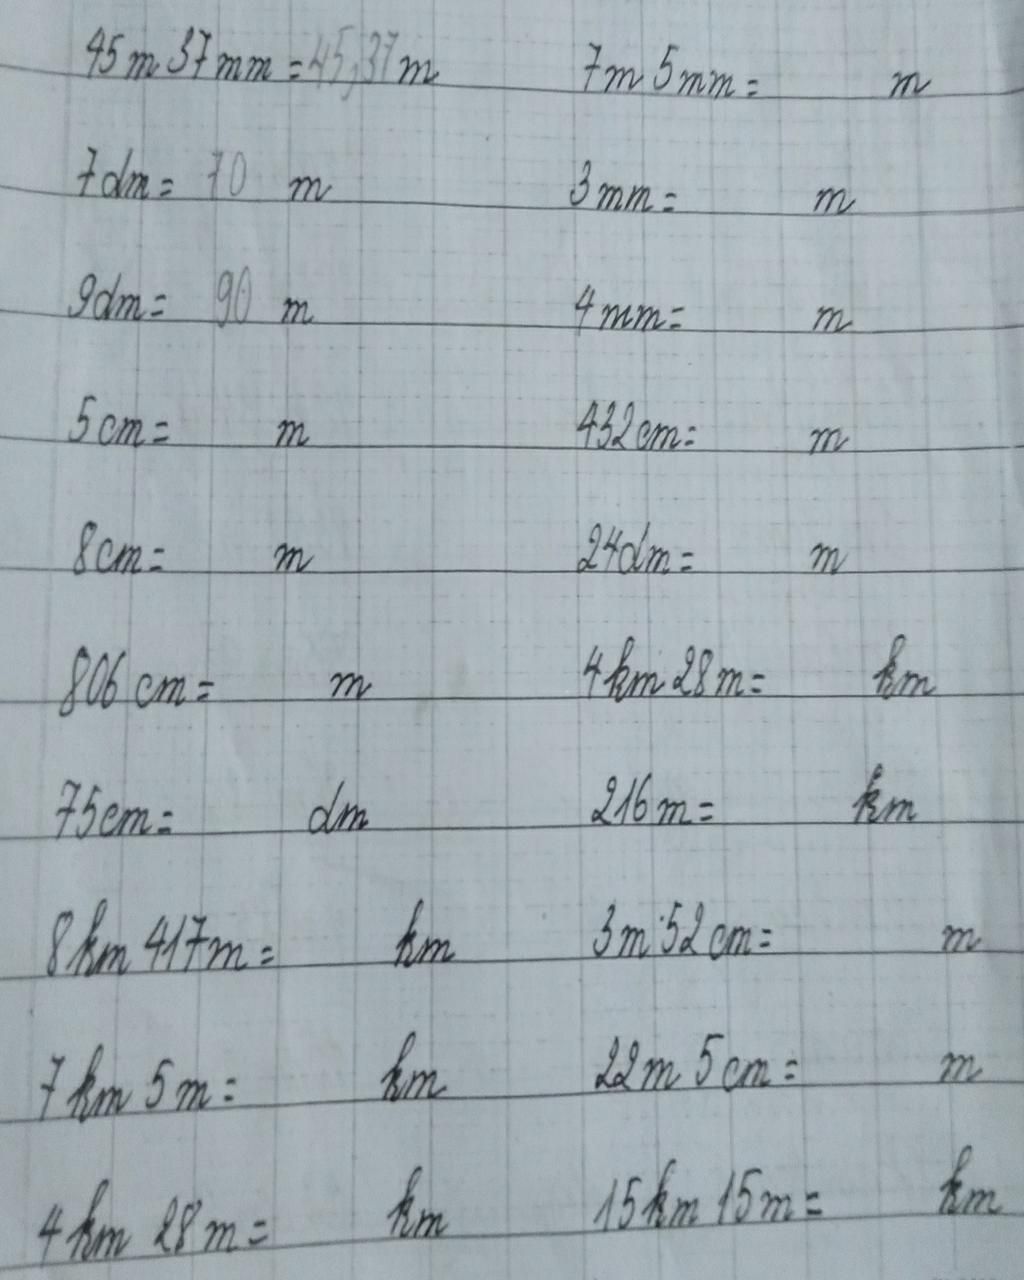 45m 37mm = 45,37 m 7m 5mm = m
7dm = 70 m 3mm = m
9dm = 90 m 4mm = m
5cm = m 432cm = m
8cm = m 24dm = m
806 cm = m 4km 28m = km
75cm = dm 216m = km
8km 417m = km 3m 52cm = m
7km 5m = km 22m 5cm = m
4km 28m = km 15km 15m = km